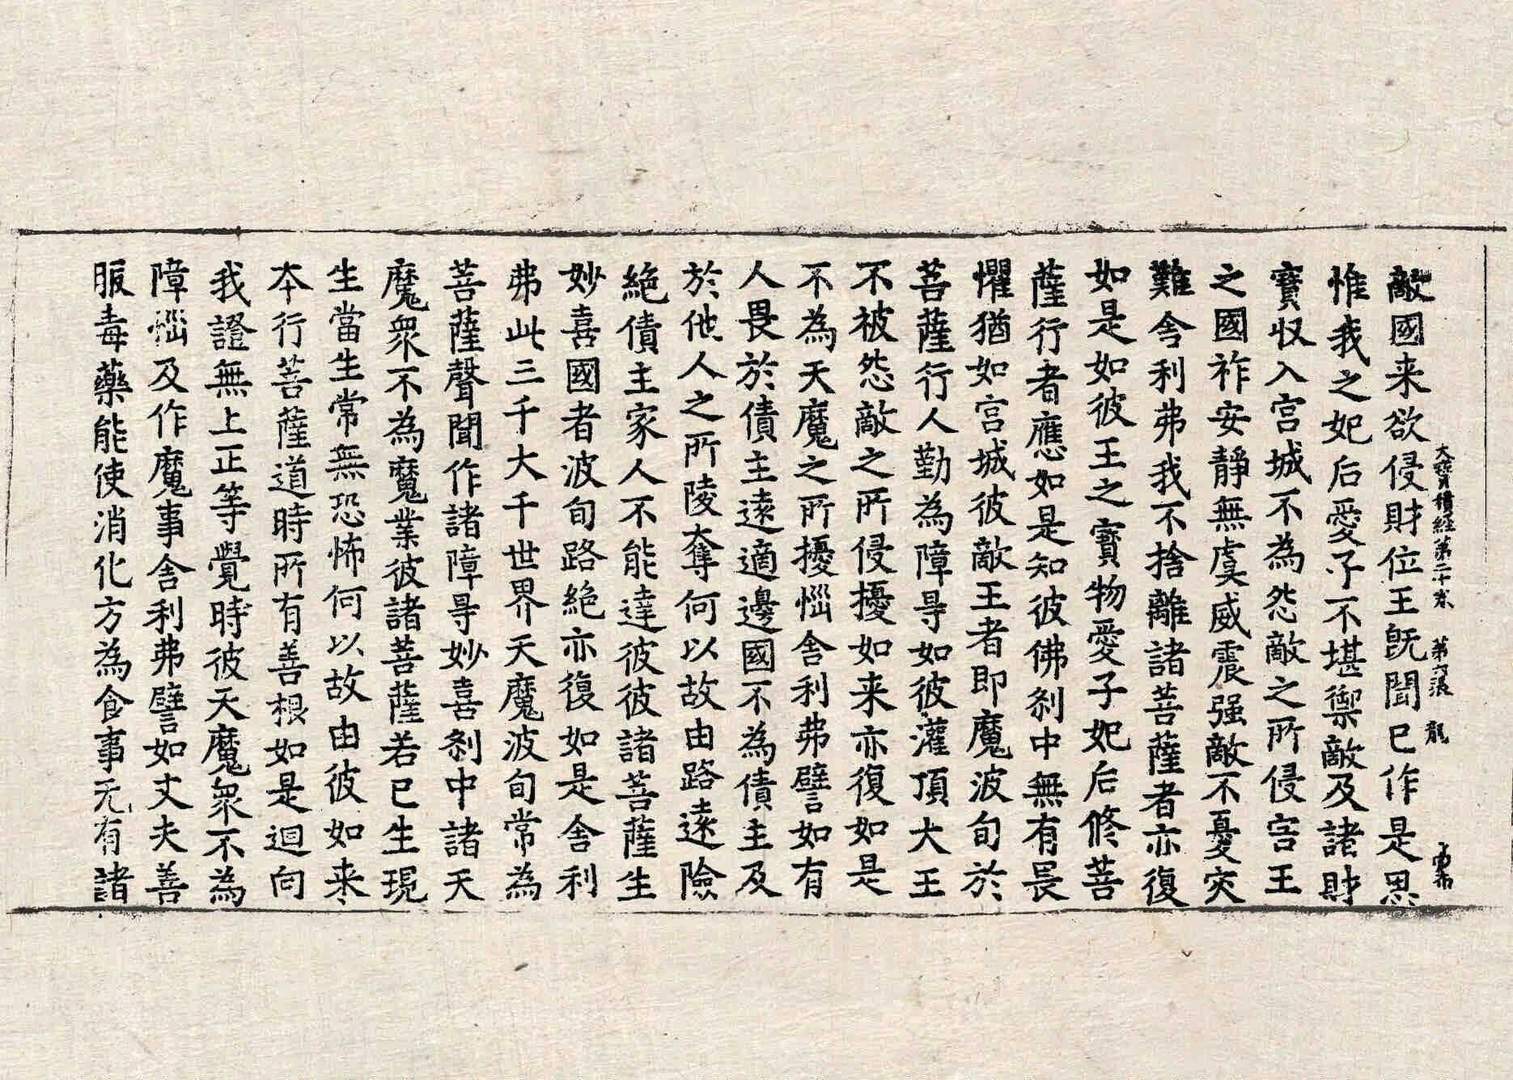 大寶積經第二十卷 第六張 龍
敵國来欲侵財位王旣聞已作是思
惟我之妃后愛子不堪禦敵及諸財
寶収入宫城不為怨敵之所侵害王
之國祚安靜無虞威震强敵不憂灾
難舍利弗我不捨離諸菩薩者亦復
如是如彼王之寶物愛子妃后修菩
薩行者應如是知彼佛刹中無有畏
懼猶如宫城彼敵王者即魔波旬於
菩薩行人勤為障㝵如彼灌頂大王
不被怨敵之所侵擾如来亦復如是
不為天魔之所擾惱舍利弗譬如有
人畏於債主遠適邊國不為債主及
於他人之所陵奪何以故由路遠險
絶債主家人不能達彼彼諸菩薩生
妙喜國者波旬路絶亦復如是舍利
弗此三千大千世界天魔波旬常為
菩薩聲聞作諸障㝵妙喜刹中諸天
魔衆不為魔業彼諸菩薩若已生現
生當生常無恐怖何以故由彼如来
本行菩薩道時所有善根如是迴向
我證無上正等覺時彼天魔衆不為
障惱及作魔事舍利弗譬如丈夫善
服毒藥能使消化方為食事无有諸